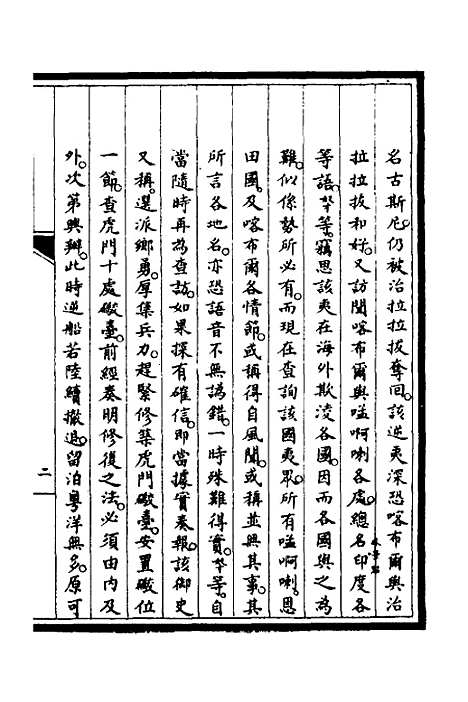 名古斯尼。仍被治拉拉拔奪回。該逆夷深恐喀布爾與治
拉拉拔和好。又訪聞喀布爾與嗌啊喇各處。總名印度各
等語。等。竊思該夷在海外欺凌各國。因而各國與之為
難。似係勢所必有。而現在查詢該國夷眾。所有嗌啊喇。恩
田國。及喀布爾各情節。或稱得自風聞。或稱並無其事。其
所言各地名。亦恐語音不無譌錯。一時殊難得實。等。自
當隨時再為查訪。如果探有確信。即當據實奏報。該御史
又稱。選派鄉勇。厚集兵力。趕緊修築虎門礮臺。安置礮位
一節。查虎門十處礮臺。前經奏明修復之法。必須由內及
外。次第興辦。此時逆船若陸續撤退。留泊粵洋無多。原可
二